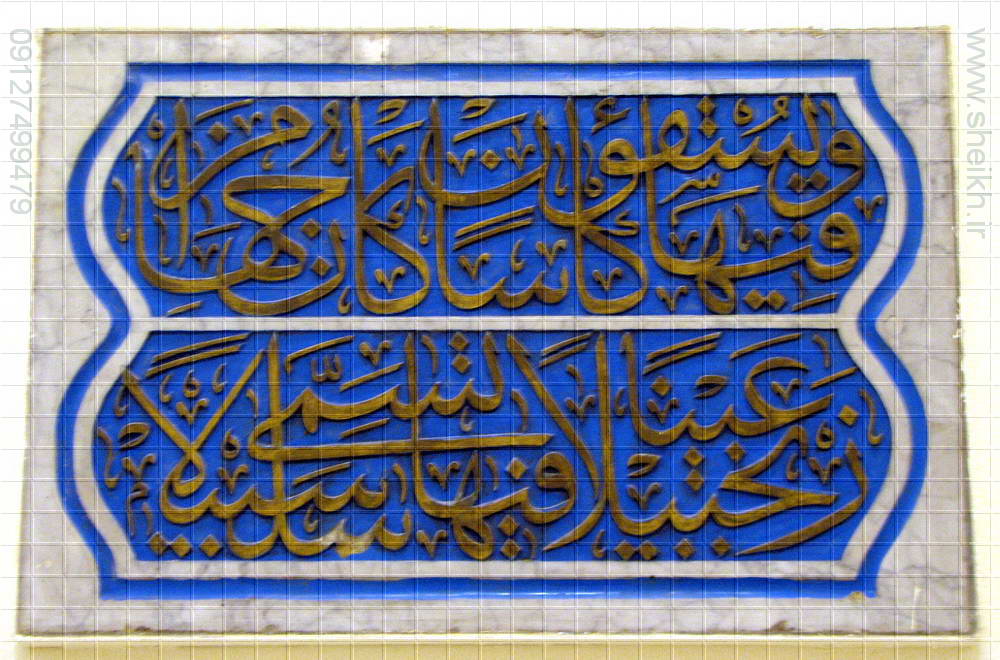 وَيُسْقَوْنَ فِيهَا كَأْسًا كَانَ مِزَاجُهَا
زَنْجَبِيلًا عَيْنًا فِيهَا تُسَمَّى سَلْسَبِيلًا
09127499479
www.sheikh.ir